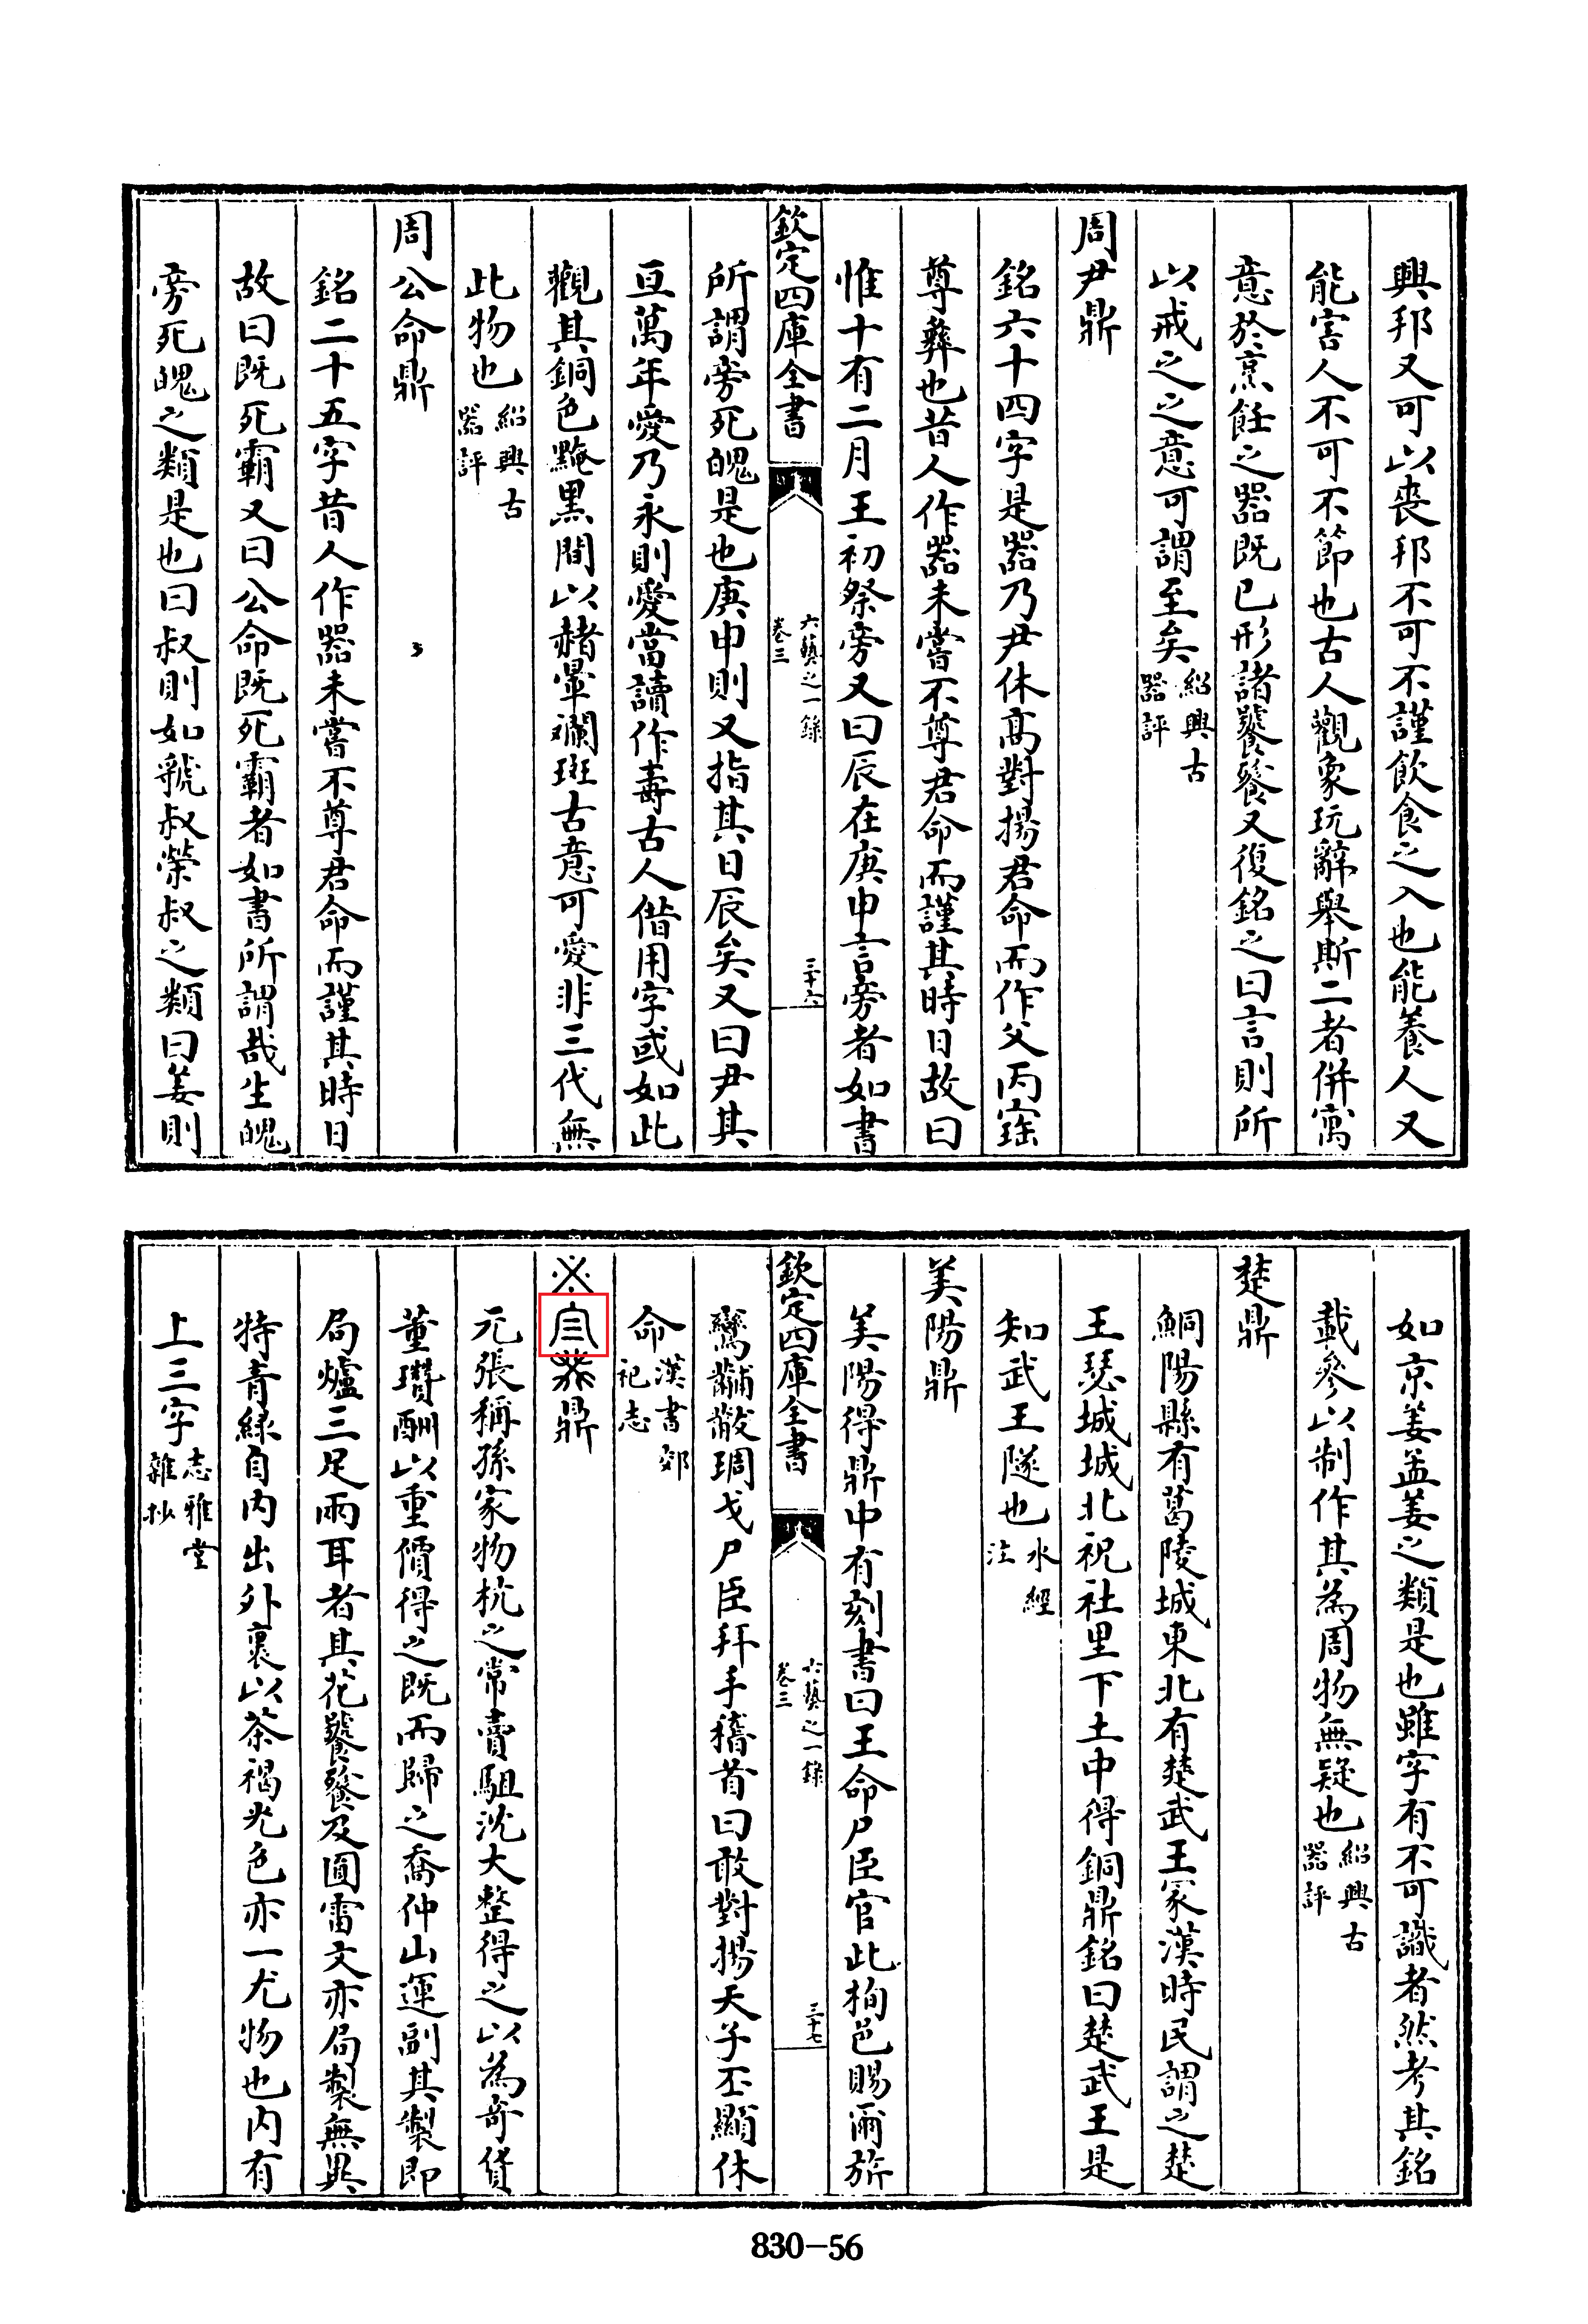 興邦又可以喪邦不可不謹飲食之入也能養人又
能害人不可不節也古人觀象玩辭舉斯二者併寓
意於烹飪之器既已形諸饕餮又復銘之曰言則所
以戒之之意可謂至矣紹興古器評
周尹鼎
銘六十四字是器乃尹休高對揚君命而作父丙寶
尊彝也昔人作器未嘗不尊君命而謹其時日故曰
惟十有二月王初祭旁又曰辰在庚申言旁者如書
欽定四庫全書
六藝之一錄
卷三
三十六
所謂旁死魄是也庚申則又指其日辰矣又曰尹其
亘萬年愛乃永則愛當讀作壽古人偕用字或如此
觀其銅色黤黑間以赭暈斕斑古意可愛非三代無
此物也紹興古器評
周公命鼎
銘二十五字昔人作器未嘗不尊君命而謹其時日
故曰既死霸又曰公命既死霸者如書所謂哉生魄
旁死魄之類是也曰叔則如虢叔榮叔之類曰姜則
如京姜孟姜之類是也雖字有不可識者然考其銘
載參以制作其為周物無疑也紹興古器評
楚鼎
鮦陽縣有葛陵城東北有楚武王冢漢時民謂之楚
王瑟城城北祝社里下土中得銅鼎銘曰楚武王是
知武王隧也水經注
美陽鼎
美陽得鼎中有刻書曰王命尸臣官此栒邑賜爾旂
欽定四庫全書
六藝之一錄
卷三
三十七
鸞黼黻琱戈尸臣拜手稽首曰敢對揚天子丕顯休
命漢書郊祀志
鼎
元張稱孫家物杭之常賣駔沈大整得之以為奇貨
董瓚酬以重價得之既而歸之喬仲山運副其製即
局爐三足兩耳者其花饕餮及圓雷文亦局製無異
特青綠自內出外裹以茶褐光色亦一尤物也內有
上三字志雅堂雜抄
830-56